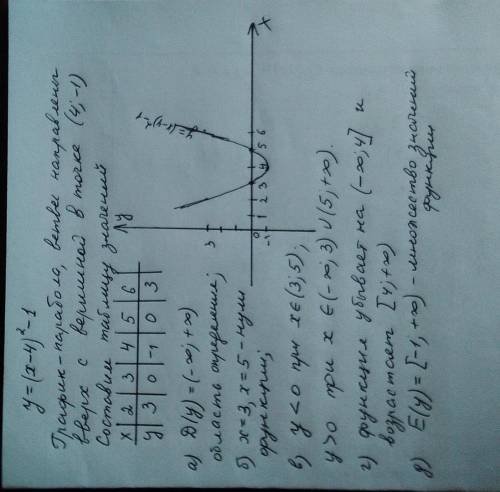 y=(x-4)²-1
График-парабола, ветви направлены
вверх с вершиной в точке (4;-1)
Составим таблицу значений
x | 2 | 3 | 4 | 5 | 6
y | 3 | 0 | -1 | 0 | 3
y
3
0 1 2 3 4 5 6
-1
x
y=(x-4)²-1
а) D(y)=(-∞;+∞)
область определения;
б) x=3, x=5 - нули
функции;
в) y<0 при x∈(3;5),
y>0 при x∈(-∞;3)∪(5;+∞).
г) функция убывает на (-∞;4] и
возрастает [4;+∞)
д) E(y)=[-1,+∞) - множество значений
функции